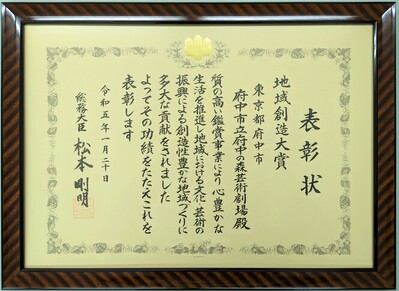 表彰状
地域創造大賞
東京都府中市
府中市立府中の森芸術劇場殿
質の高い鑑賞事業により心豊かな
生活を推進し地域における文化・芸術の
振興による創造性豊かな地域づくりに
多大な貢献をされました
よってその功績をたたえこれを
表彰します
令和五年一月二十日
総務大臣 松本剛明